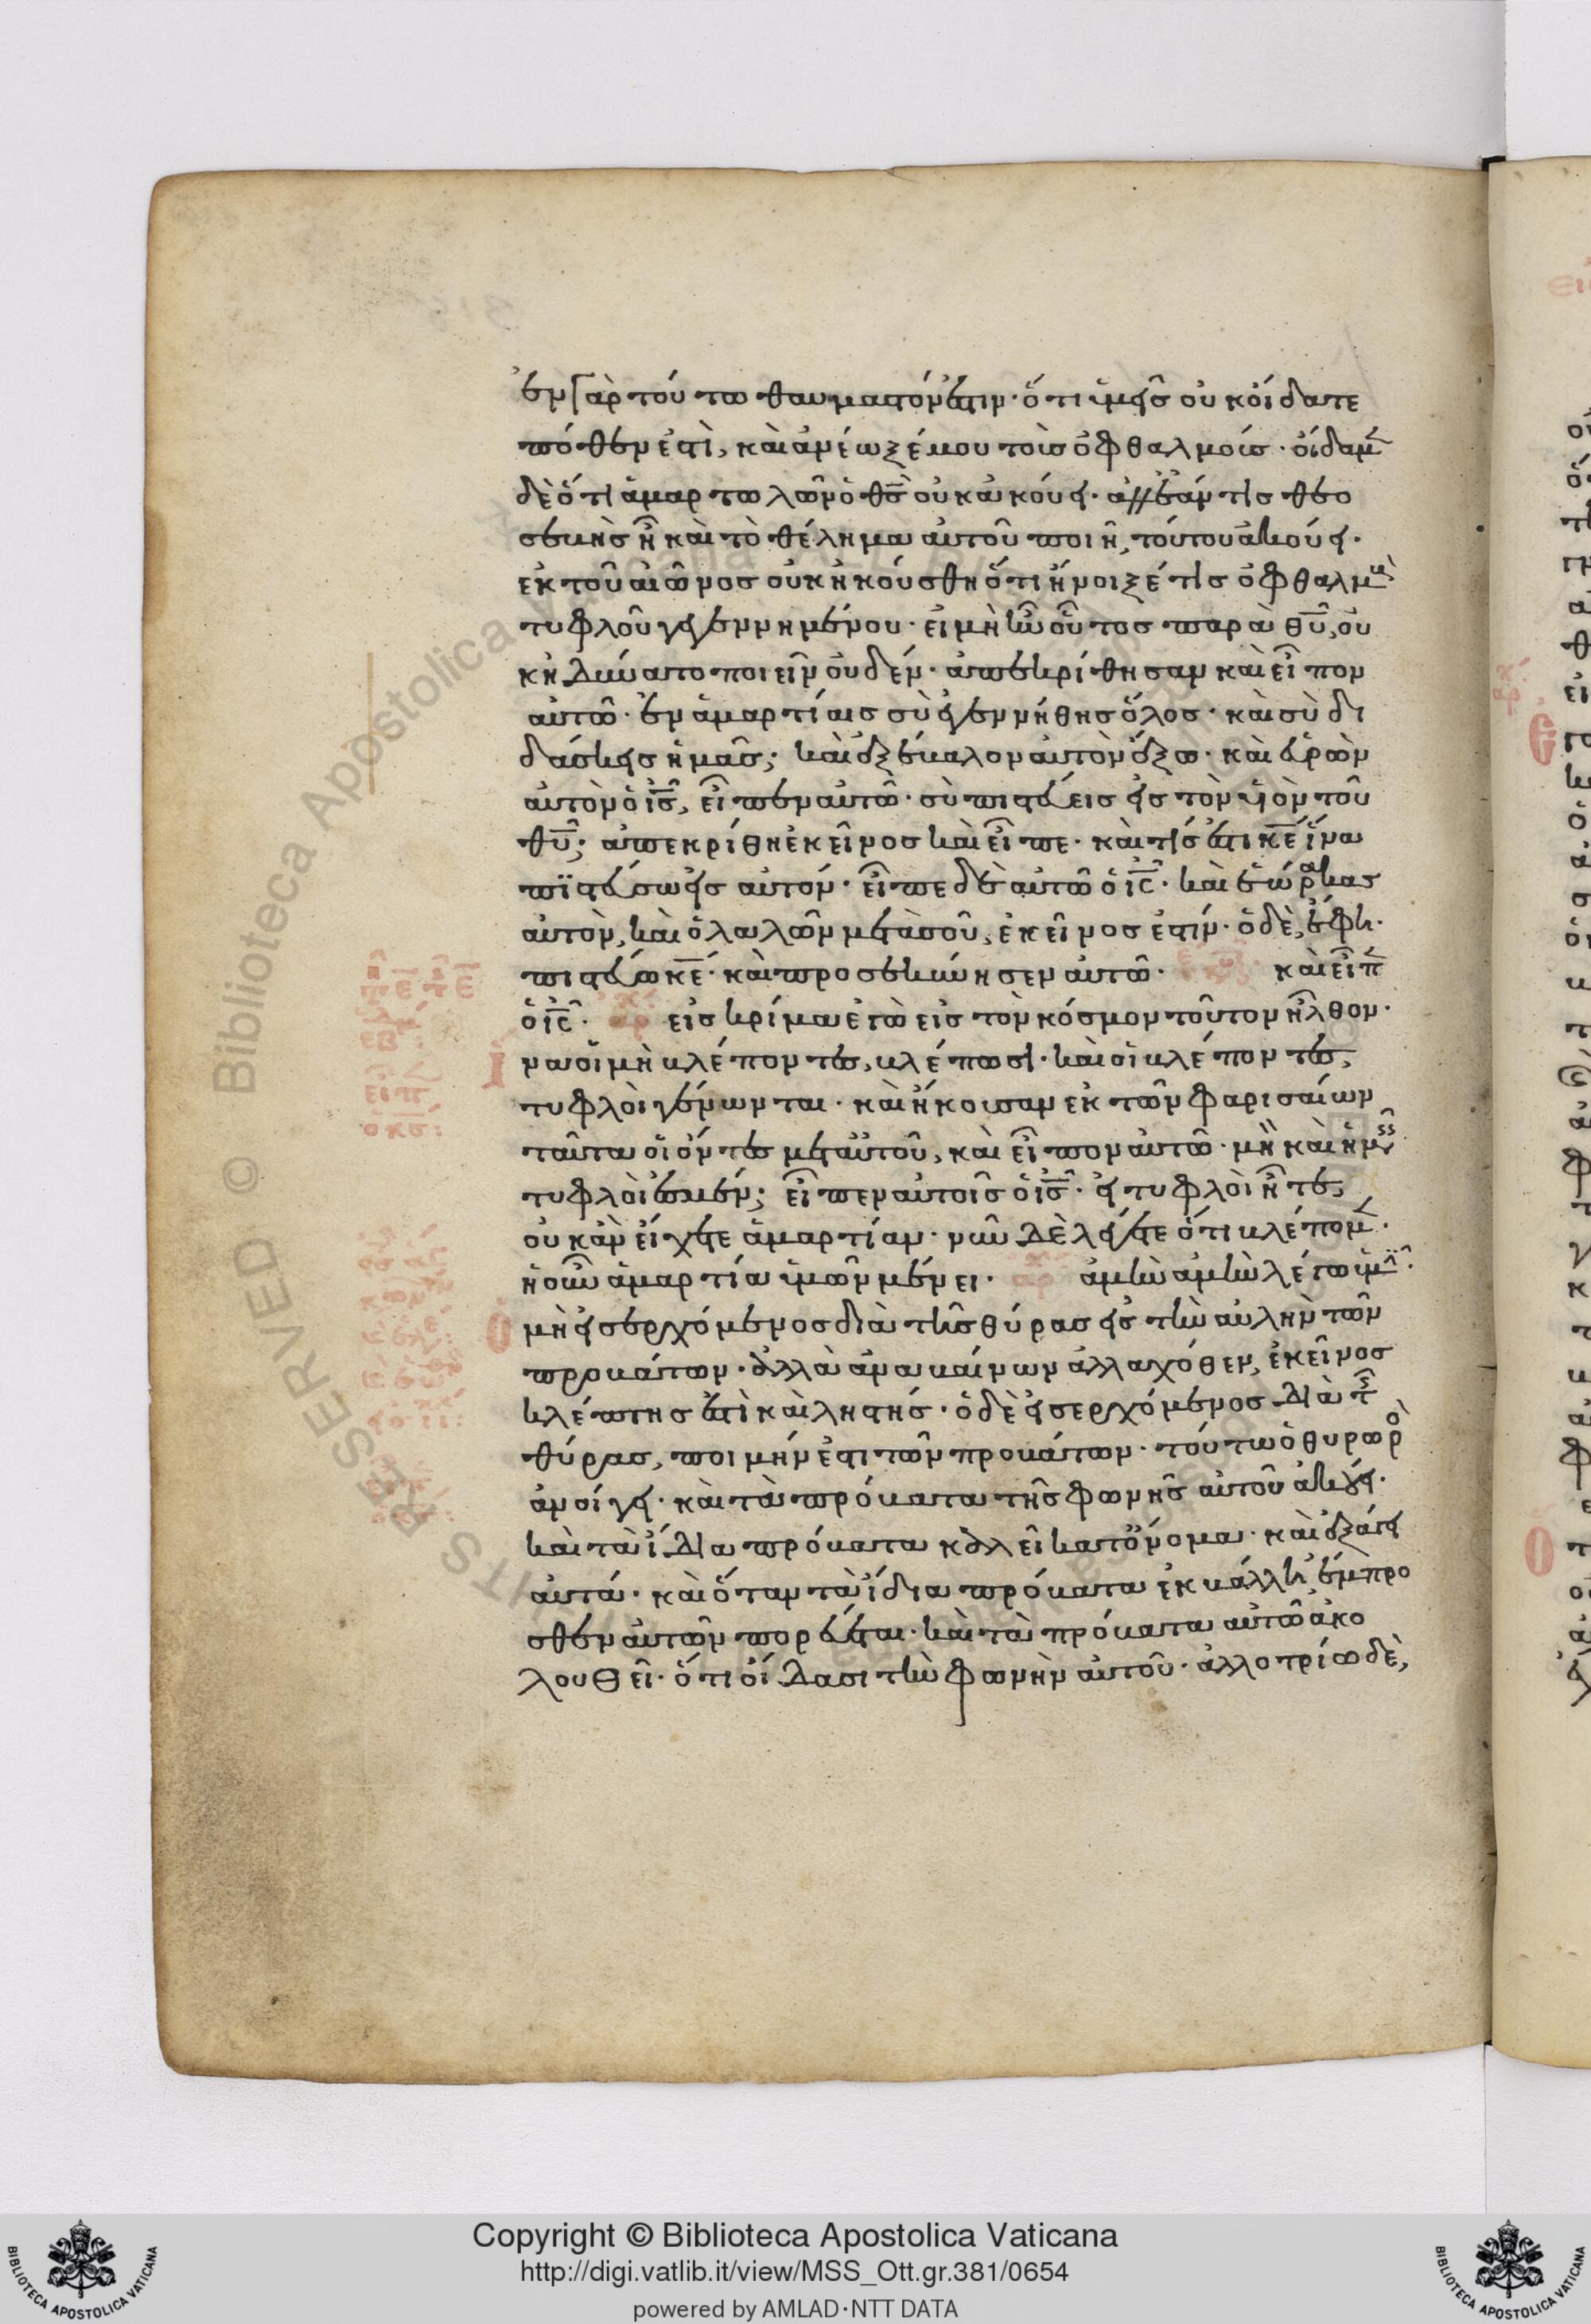 ἐν γὰρ τούτω θαυμαστόν ἐστιν· ὅτι ὑμεῖς οὐκ οἴδατε
πόθεν ἐστὶ, καὶ ἀνέωξέ μου τοὺς ὀφθαλμούς· οἴδαμ
δὲ ὅτι ἁμαρτωλῶν ὁ θς οὐκ ἀκούει· ἀλλ' ἐάν τις θεο
σεβὴς ἦ καὶ τὸ θέλημα αὐτοῦ ποιῆ, τούτου ἀκούει·
ἐκ τοῦ αἰῶνος οὐκ ἠκούσθη ὅτι ἤνοιξέ τις ὀφθαλμοὺ
τυφλοῦ γεγεννημένου· εἰ μὴ ἦν οὗτος παρὰ θυ, οὐ
κ ἠδύνατο ποιεῖν οὐδέν· ἀπεκρίθησαν καὶ εἶπον
αὐτῶ· ἐν ἁμαρτίαις σὺ ἐγεννήθης ὅλος· καὶ σὺ δι
δάσκεις ἡμᾶς; καὶ ἐξέβαλον αὐτὸν ἔξω· καὶ εὑρὼν
αὐτὸν ὁ ις, εἶπεν αὐτῶ· σὺ πιστεύεις εἰς τὸν υἱὸν τοῦ
θυ; ἀπεκρίθη ἐκεῖνος καὶ εἶπε· καὶ τίς ἐστι κε ἵνα
πιστεύσω εἰς αὐτόν· εἶπε δὲ αὐτῶ ὁ ις· καὶ ἑώρακας
αὐτὸν, καὶ ὁ λαλῶν μετὰ σοῦ, ἐκεῖνος ἐστίν· ὁ δὲ, ἔφη·
πιστεύω κε· καὶ προσεκύνησεν αὐτῶ· καὶ εἶπ
ὁ ις· εἰς κρίμα ἐγὼ εἰς τὸν κόσμον τοῦτον ἦλθον·
ἵνα οἱ μὴ βλέποντες, βλέπωσι· καὶ οἱ βλέποντες,
τυφλοὶ γένωνται· καὶ ἤκουσαν ἐκ τῶν φαρισαίων
ταῦτα οἱ ὄντες μετ' αὐτοῦ, καὶ εἶπον αὐτῶ· μὴ καὶ ἡμεῖς
τυφλοὶ ἐσμέν; εἶπεν αὐτοῖς ὁ ις· εἰ τυφλοὶ ἦτε,
οὐκ ἂν εἴχετε ἁμαρτίαν· νῦν δὲ λέγετε ὅτι βλέπομ·
ἡ οὖν ἁμαρτία ὑμῶν μένει· ἀμὴν ἀμὴν λέγω ὑμῖν·
ὁ μὴ εἰσερχόμενος διὰ τῆς θύρας εἰς τὴν αὐλὴν τῶν
προβάτων· ἀλλὰ ἀναβαίνων ἀλλαχόθεν, ἐκεῖνος
κλέπτης ἐστὶ καὶ ληστής· ὁ δὲ εἰσερχόμενος διὰ τῆς
θύρας, ποιμήν ἐστι τῶν προβάτων· τούτω ὁ θυρωρὸ
ἀνοίγει· καὶ τὰ πρόβατα τῆς φωνῆς αὐτοῦ ἀκούει·
καὶ τὰ ἴδια πρόβατα καλεῖ κατ' ὄνομα· καὶ ἐξάγει
αὐτά· καὶ ὅταν τὰ ἴδια πρόβατα ἐκβάλλη, ἔμπρο
σθεν αὐτῶν πορεύεται· καὶ τὰ πρόβατα αὐτῶ ἀκο
λουθεῖ· ὅτι οἴδασι τὴν φωνὴν αὐτοῦ· ἀλλοτρίω δὲ,
Copyright © Biblioteca Apostolica Vaticana
http://digi.vatlib.it/view/MSS_Ott.gr.381/0654
powered by AMLAD·NTT DATA